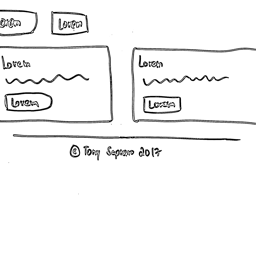 Lorem Lorem
Lorem Lorem
Lorem Lorem
© Tony 2017